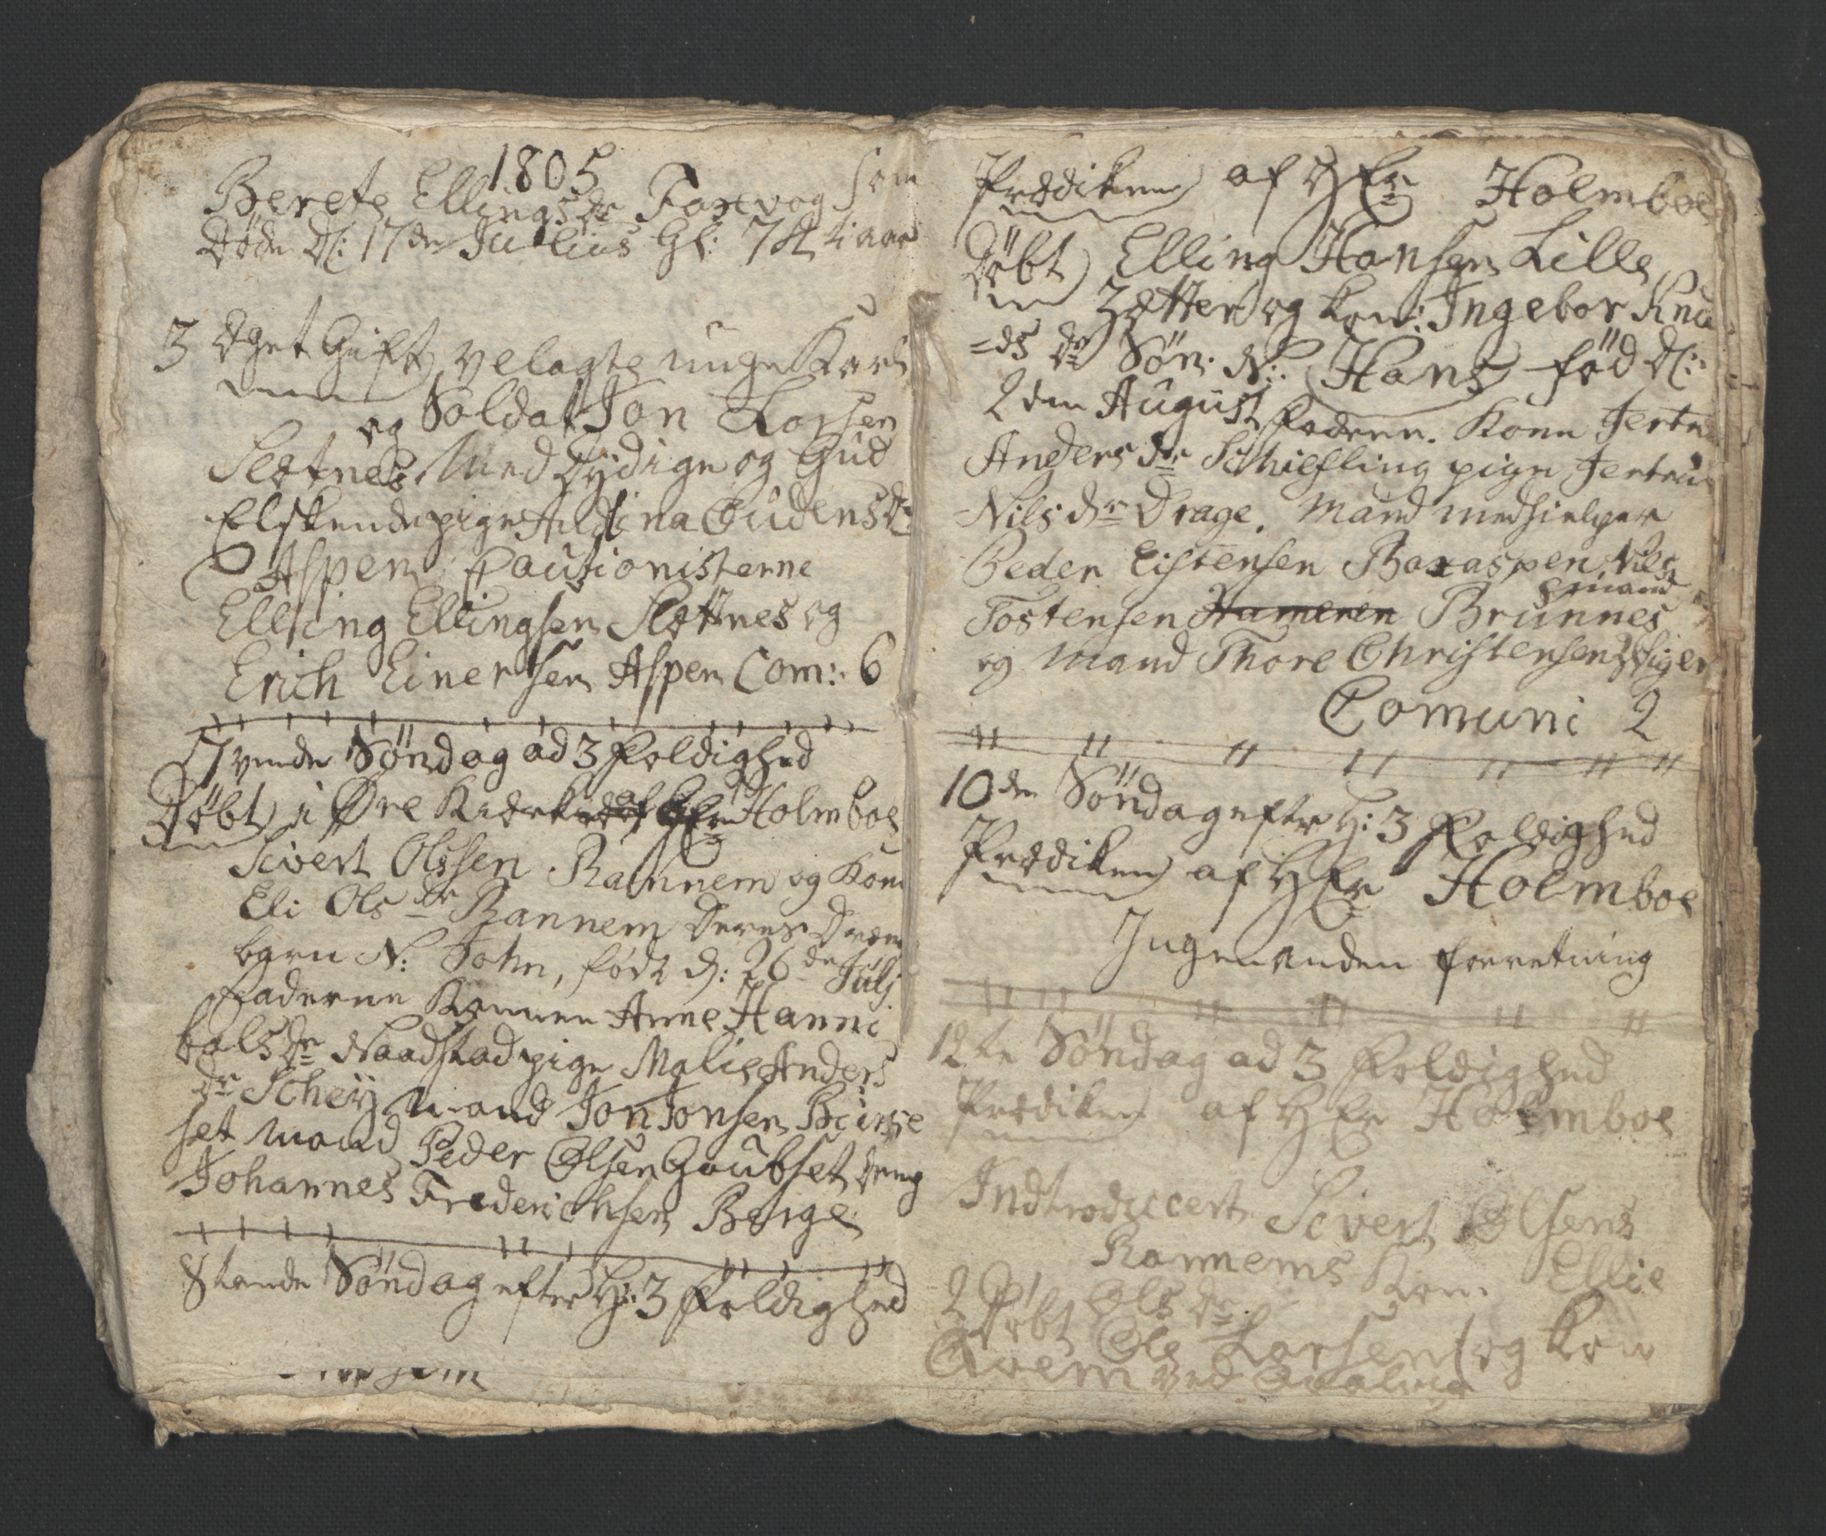 1805
Berete Ellingsdr Farvog som
døde d: 17de Julius Gl: 74 ti aar
3 Dget Gift velagte unge Karl
og Soldat Jon Larsen
Slætnes Med Dydige og Gud
Elskende pige Gudensdr
Aspem Cautionisterne
Elling Ellingsen Slættnes og
Erich Einersen Aspem Com: 6
Syvende Søndag ad 3 Foldighed
Døbt i Øre Kierke af HEr Holmboe
Sivert Olssen Rannem og Kone
Eli Olsdr Rannem Deres Drænge
barn N: John, født d: 26de Julj
Faderne Konnen Anne Hanni
balsdr Naadstad pige Malie Anders
dr Scheij mand Jon Jonsen Biørse
set mand Peder Olsen Goubset dreng
Johannes Frederichsen Berge
8tende Søndag efter H: 3 Foldighed
Prædiken af HEr Holmboe
Døbt Elling Hansen Lille
Zætter og kone: Ingebor Knu
=ds dr Søn. N: Hans fød d:
2den August Faderne. Kone Jertru
Andersdr Schiefling pige Jertru
Nilsdr Drage. Mand medhielper
Peder Eistensen Boxaspen Nils
Tostensen Hameren Brunnes mand
og Mand Thore Christensen
Comuni 2
10de Søndag efter H: 3 Foldighed
Prædiken af HEr Holmboe
Ingen anden forretning
12te Søndag ad 3 Foldighed
Prædiken af HEr Holmboe
Indtroduccert Sivert Olsens
Rannems Kone Ellie
Olsdr
2 Døbt Ole Larsen og Kone
Qvem ved